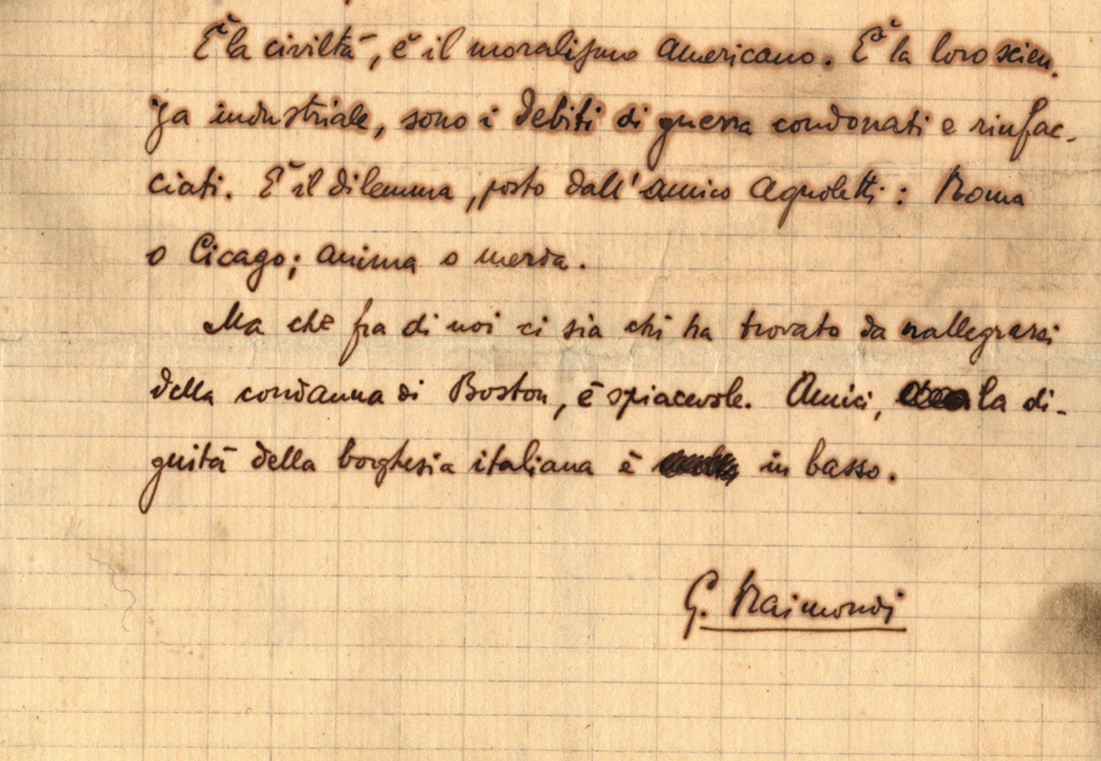 È la civiltà, è il moralismo americano. È la loro scien-
za industriale, sono i debiti di guerra condonati e rinfac-
ciati. È il dilemma, posto dall'amico Agnoletti: Roma
o Cicago; anima o merda.
Ma che fra di noi ci sia chi ha trovato da rallegrarsi
della condanna di Boston, è spiacevole. Amici, la di-
gnità della borghesia italiana è in basso.
G. Raimondi